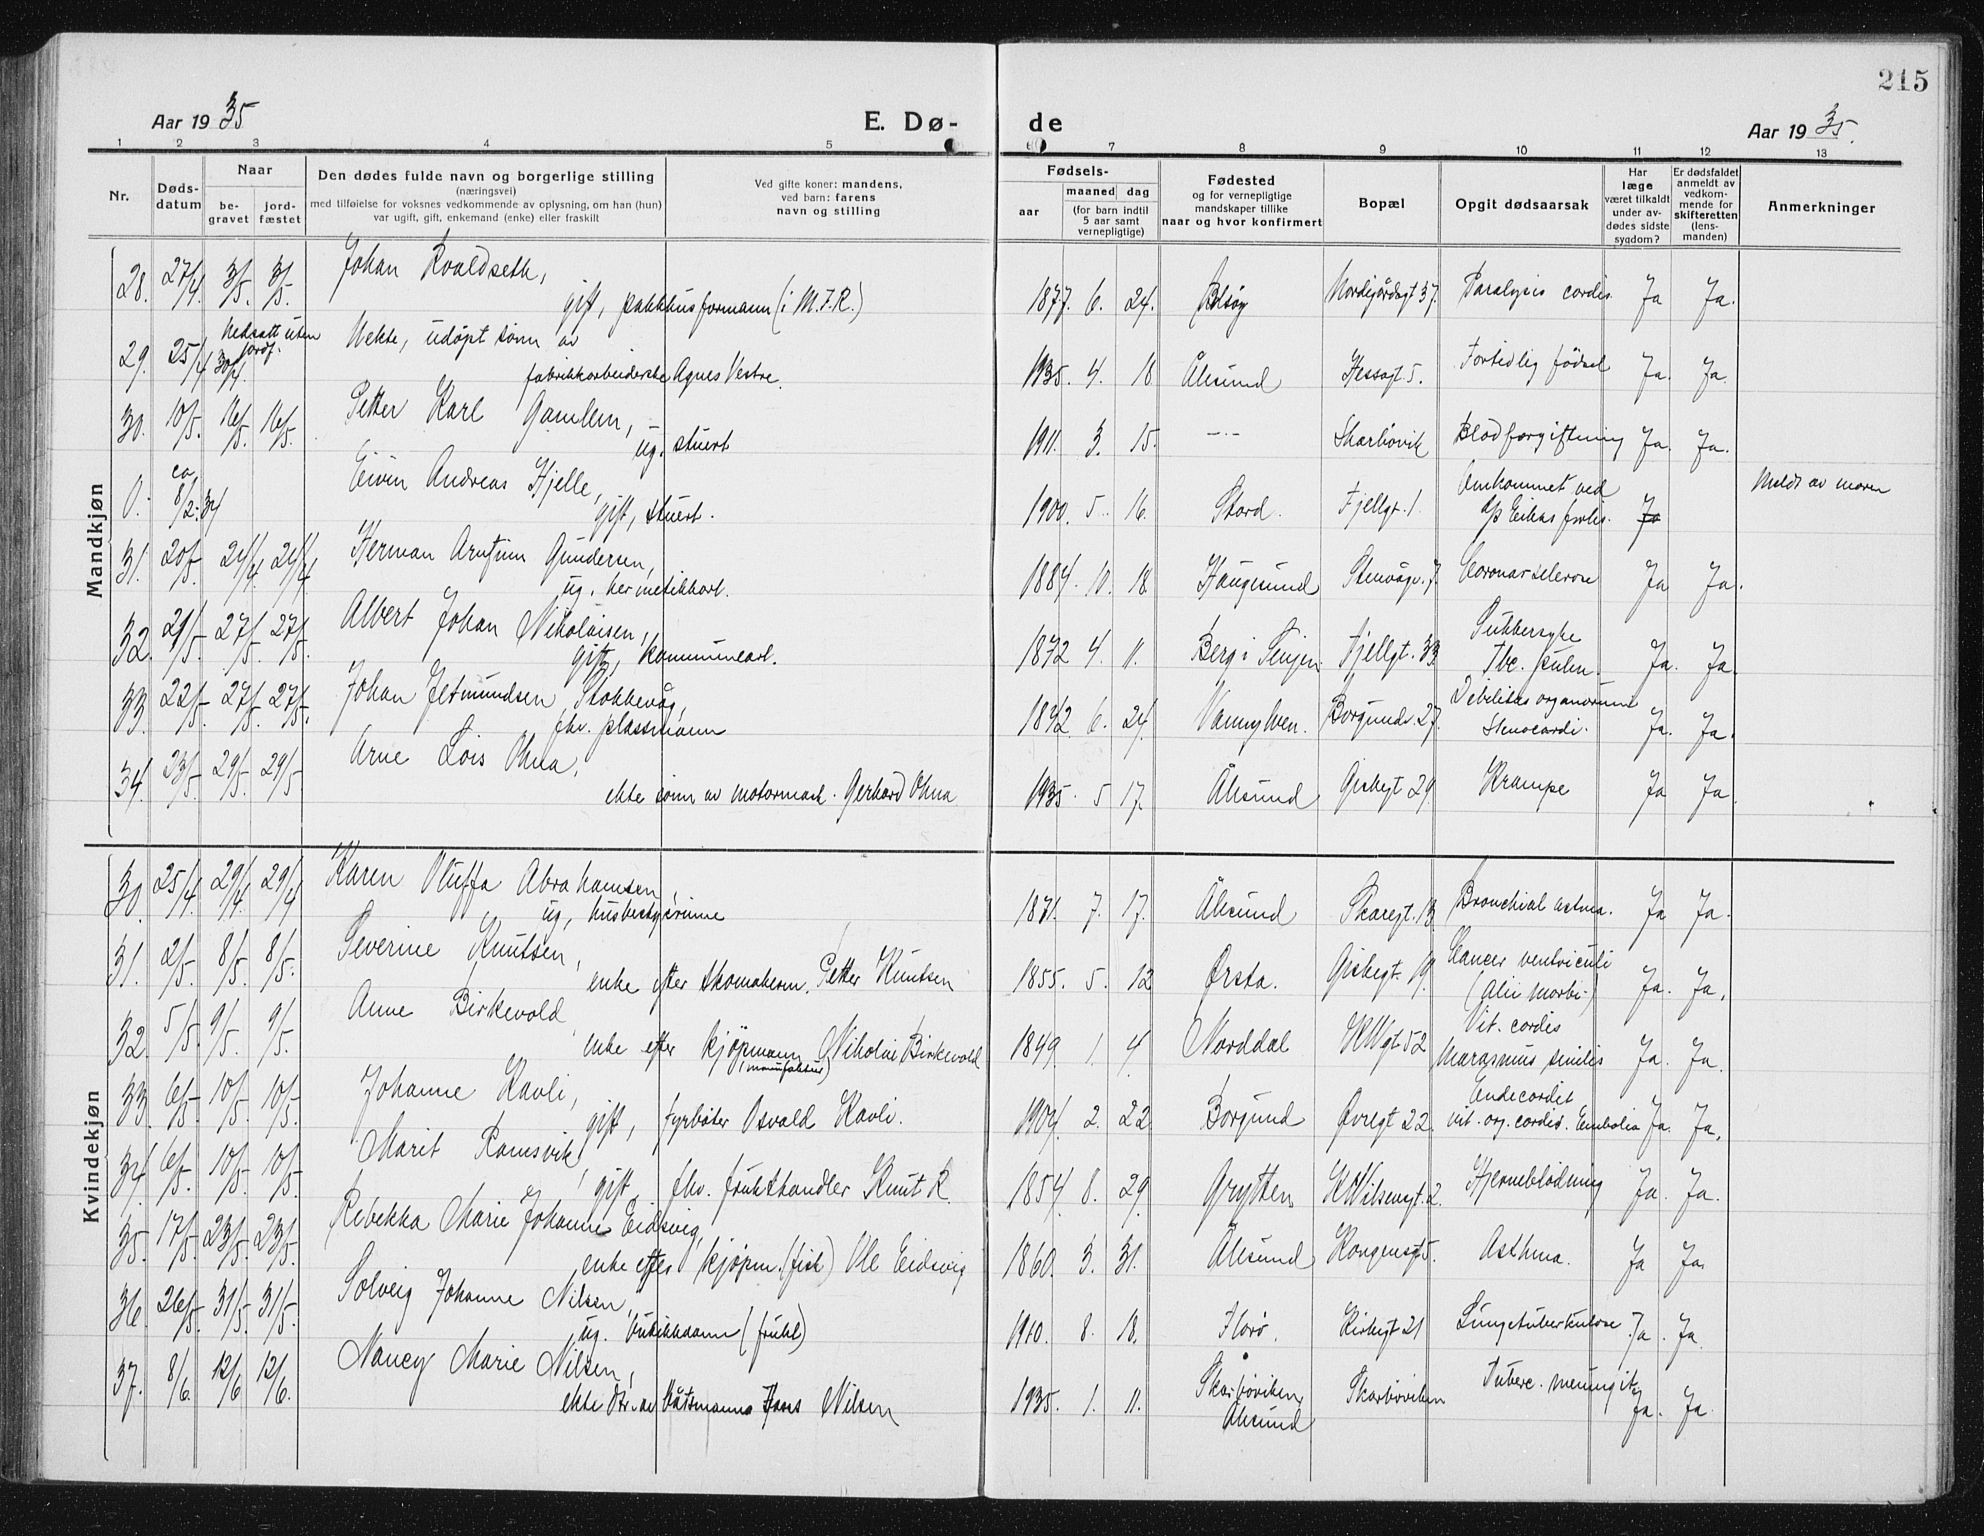 215
Aar 1935
E. Dø-
de
Aar 1935.
1 2 3 4 5 7 8 9 10 11 12 13
Nr.
Døds-
datum
Naar
be-
gravet
jord-
fæstet
Den dødes fulde navn og borgerlige stilling
(næringsvei)
med tilføielse for voksnes vedkommende av oplysning, om han (hun)
var ugift, gift, enkemand (enke) eller fraskilt
Ved gifte koner: mandens,
ved barn: farens
navn og stilling
Fødsels-
aar
maaned dag
(for barn indtil
5 aar samt
vernepligtige)
Fødested
og for vernepligtige
mandskaper tillike
naar og hvor konfirmert
Bopæl
Opgit dødsaarsak
Har
læge
været tilkaldt
under av-
dødes sidste
sygdom?
Er dødsfaldet
anmeldt av
vedkom-
mende for
skifteretten
(lens-
manden)
Anmerkninger
Mandkjøn
28. 27/4. 3/5. 3/5. Johan Roaldseth,
gift, pakkhusformann (i M.F.R.) 1877. 6. 24. Bolsøy Nordigårdsgt 37. Paralysis cordis. Ja Ja.
29. 25/4 30/4. Nedsatt uten jordf. Nekte, udøpt sønn av
fabrikkarbeiderske Agnes Vestre. 1935. 4. 18 Ålesund Hessagt 5. Fortidlig fødsel Ja. Ja.
30. 10/5. 16/5. 16/5. Petter Karl Gamlem,
ug. stuert 1911. 3. 15. -"- Skarbøvik Blodforgiftning Ja. Ja.
0. ca. 8/2.34 Eivin Andreas Hjelle,
gift, stuert. 1900. 5. 16. Stord. Fjellgt. 1. Omkommet ved
Ja Meldt av moren
31. 20/5. 24/4 24/4 Herman Gundersen,
ug. hermetikkarb. 1884. 10. 18. Haugesund Stenvågv. 7. Coronarsclerose Ja Ja.
32. 21/5. 27/5. 27/5. Albert Johan Nikolaisen,
gift, kommunearb. 1872 4. 11. Berg i Senjen. Fjellgt. 33 Sukkersyke
Tbc. pulm. Ja. Ja.
33. 22/5. 27/5. 27/5. Johan Jetmundsen Stokkevåg,
fhv. plassmann 1842. 6. 24. Vannylven. Borgundv. 27. Debilitas organorum
Stenocardi. Ja. Ja.
34. 23/5. 29/5. 29/5 Arne Lois Ohna,
ekte sønn av motormask. Gerhard Ohna 1935. 5 17. Ålesund Giskegt 29. Krampe Ja Ja
Kvindekjøn
30. 25/4. 29/4. 29/4 Karen Oluffa Abrahamsen,
ug, husbestyrerinne 1871. 7. 17. Ålesund Skaregt. 13. Bronchial astma. Ja Ja.
31. 2/5. 8/5. 8/5. Severine Knutsen,
enke efter skomakerm. Petter Knutsen 1855. 5. 12 Ørsta. Giskegt. 19. Cancer ventriculi
(Alii morbi-) Ja. Ja.
32. 5/5. 9/5. 9/5. Anne Birkevold,
enke efter kjøpmann (manufaktur) Nikolai Birkevold 1849. 1. 4. Norddal 52 Vit. cordis
marasmus senilis Ja. Ja.
33. 6/5. 10/5. 10/5. Johanne Kavli,
gift, fyrbøter Osvald Kavli. 1904. 2. 22 Borgund Øvregt 22. Endecordit
vit. org. cordis. Embolia Ja. Ja.
34. 6/5. 10/5. 10/5. Marit Ramsvik,
gift, fhv. frukthandler Knut R. 1854. 8. 29. Grytten 2. Hjerneblødning Ja. Ja.
35. 17/5. 23/5. 23/5. Rebekka Marie Johanne Eidsvig,
enke efter kjøpm. (fisk) Ole Eidsvig 1860. 3. 31. Ålesund Kongensgt 5. Asthma. Ja Ja.
36. 26/5. 31/5. 31/5. Solveig Johanne Nilsen,
ug. butikkdame (frukt) 1910. 8. 18. Florø. Kirkegt 21 Lungetuberkulose. Ja. Ja.
37. 8/6. 12/6 12/6. Nancy Marie Nilsen,
ekte dtr. av båtsmann Nilsen 1935. 1. 11. Skarbøviken
Ålesund Skarbøviken Tuberc. meningit Ja. Ja.